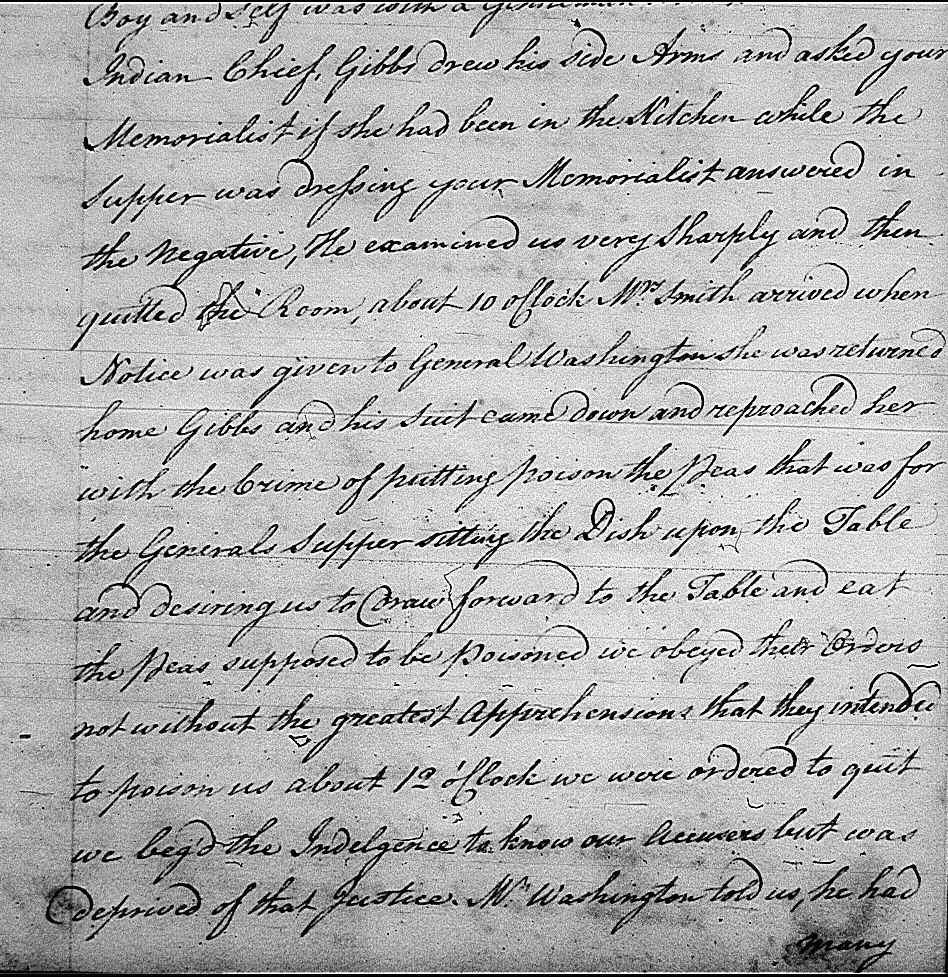 Boy and Self was with a Gentleman
Indian Chief, Gibbs drew his side Arms and asked your
Memorialist if she had been in the Kitchen while the
Supper was dressing your Memorialist answered in
the Negative, He examined us very sharply and then
quitted the Room, about 10 oClock Mrs. Smith arrived when
Notice was given to General Washington she was returned
home Gibbs and his suit came down and reproached her
with the Crime of putting poison the Peas that was for
the Generals Supper sitting the Dish upon the Table
and desiring us to Draw forward to the Table and eat
the Peas supposed to be Poisoned we obeyed their Orders
not without the greatest Apprehensions that they intended
to poison us about oClock we were ordered to quit
we beg'd the Indelgence to know our Accusers but was
deprived of that Justice. Mr. Washington told us, he had
many